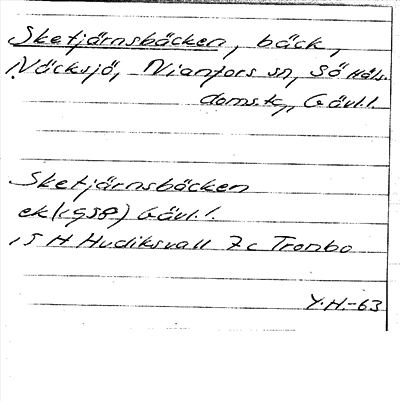 Sketjärnsbäcken, bäck,
Näcksjö, Nianfors sn, Sö Häls.
doms.tg, Gävl.l.
Sketjärnsbäcken
ek (1958) Gävl.l.
15 H Hudiksvall 7c Tronbo
Y.H.-63